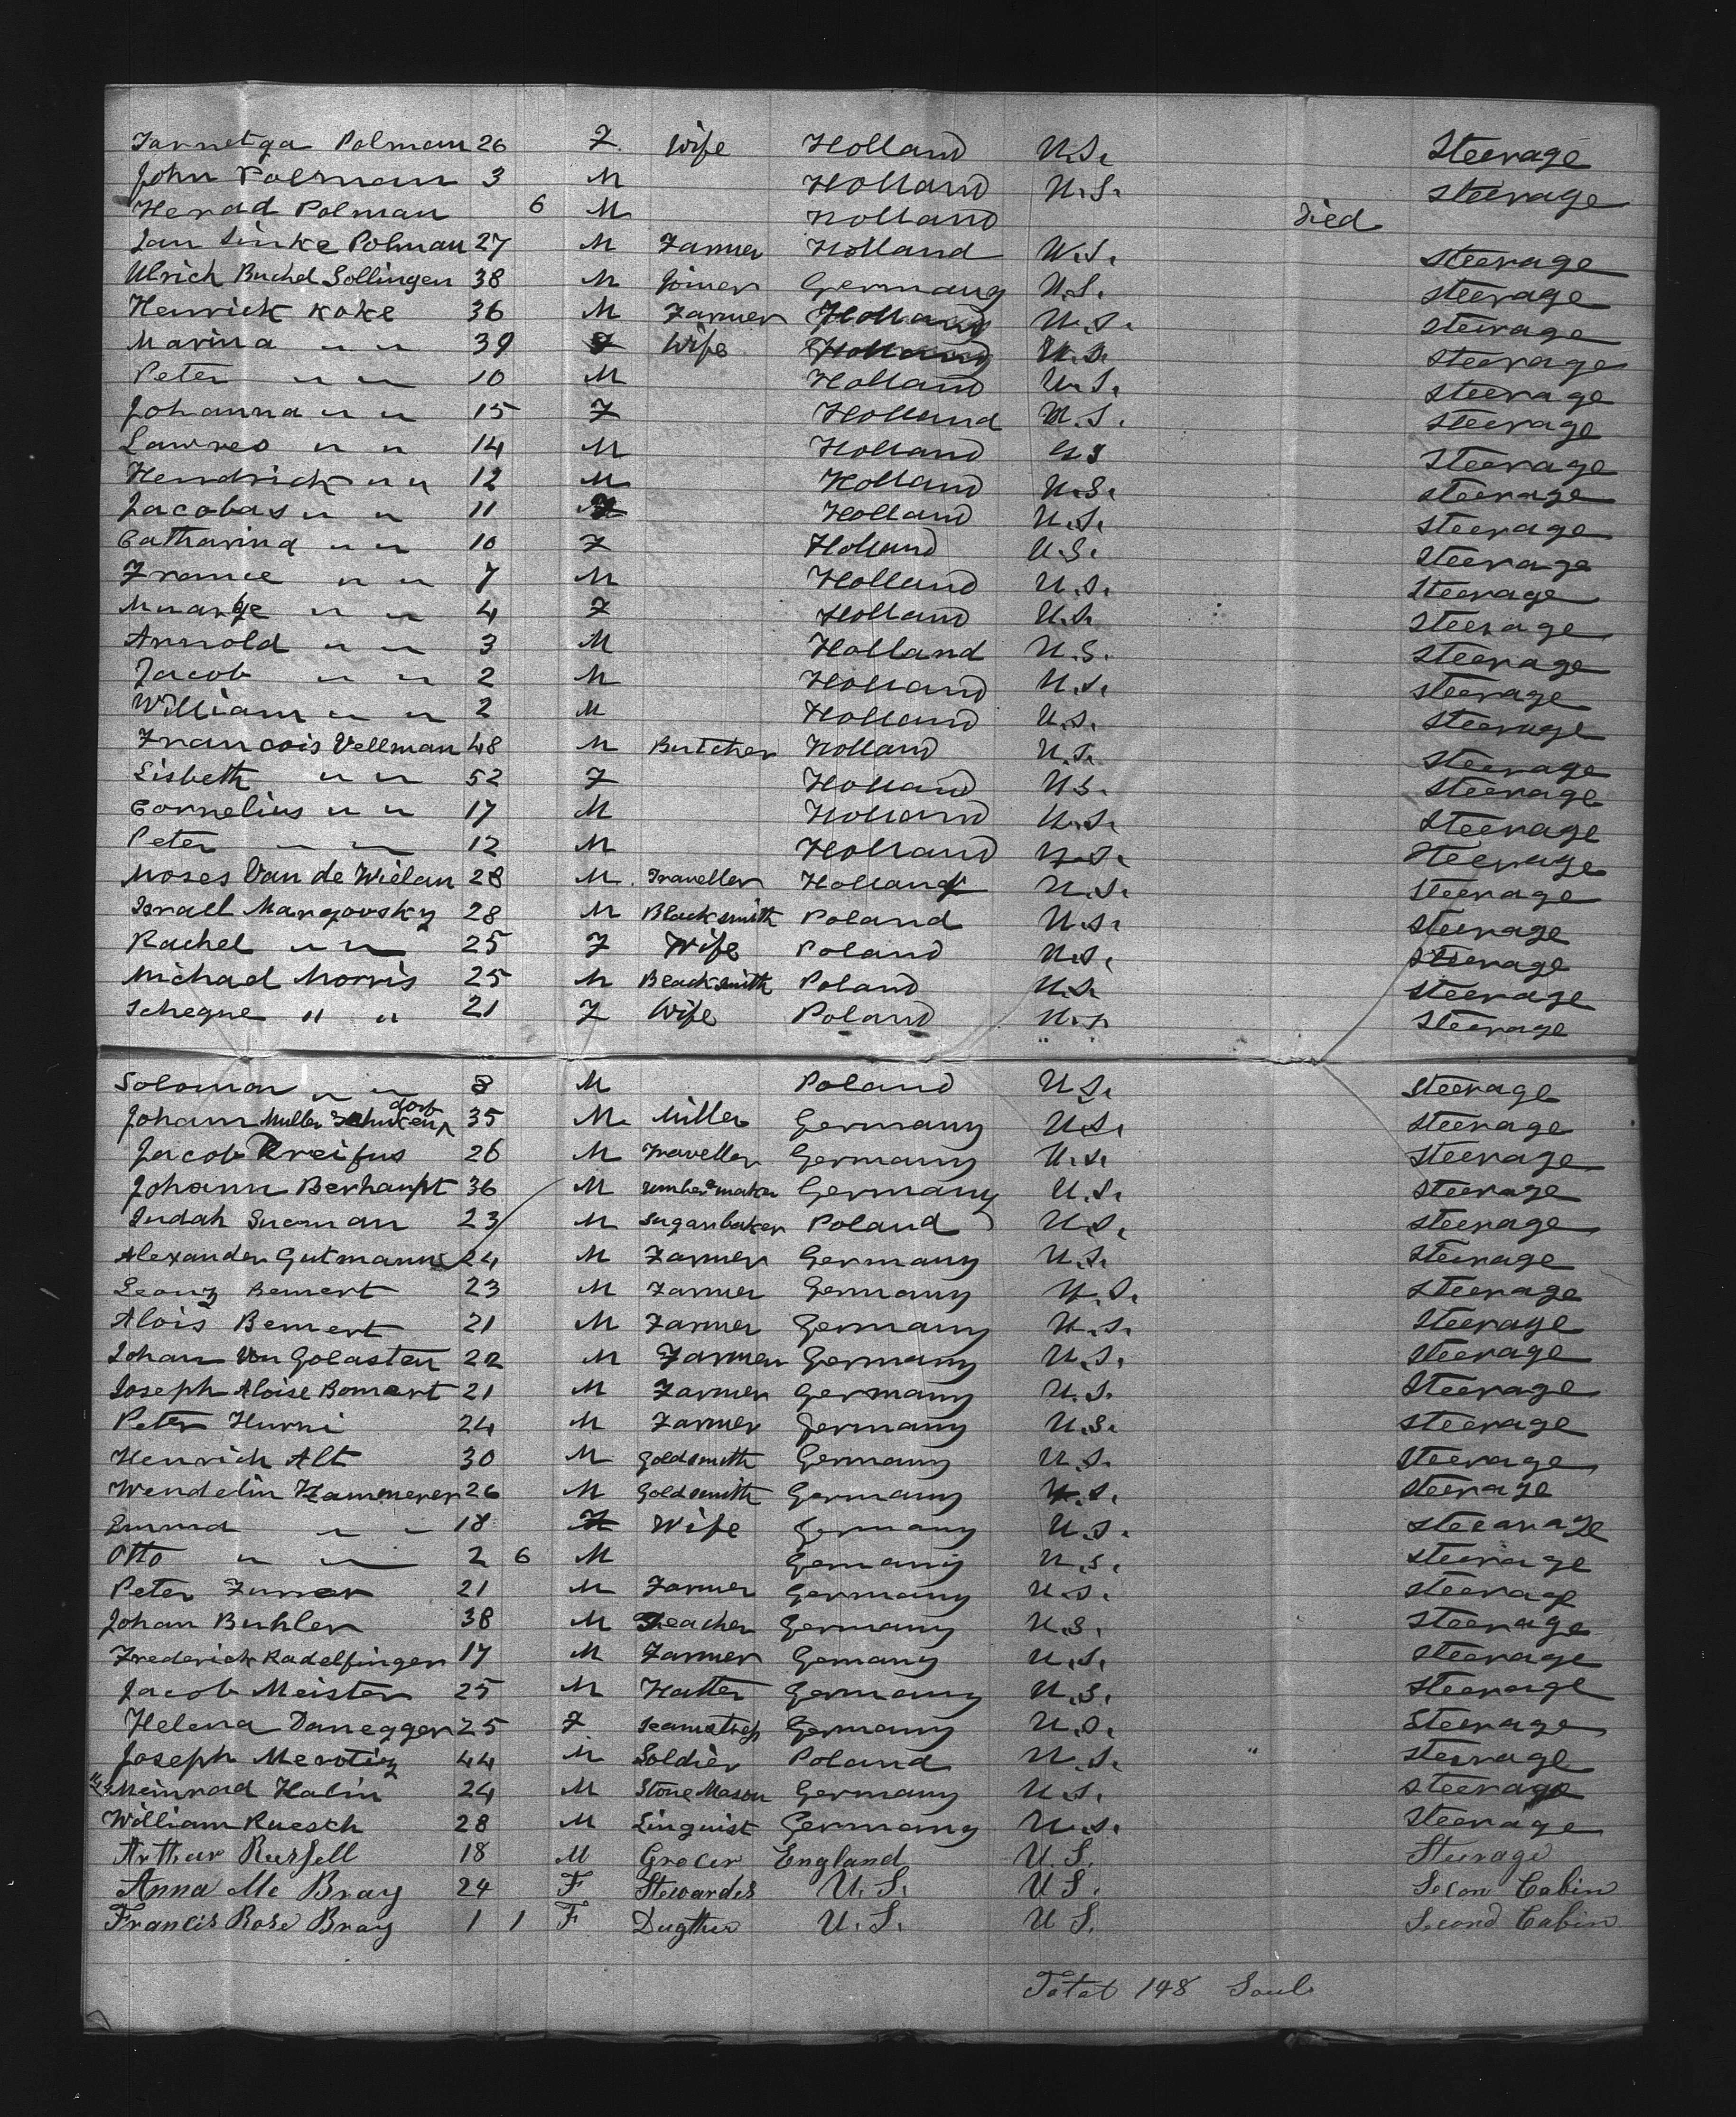 Jannetga Polman 26 F. Wife Holland U.S. Steerage
John Polman 3 M Holland U.S. Steerage
Herad Polman 6 M Holland died
Jan Sinke Polman 27 M Farmer Holland U.S. Steerage
Ulrich Buchel Sollingen 38 M Joiner Germany U.S. Steerage
Henrick Koke 36 M Farmer Holland U.S. Steerage
Marina " " 39 F Wife Holland U.S. Steerage
Peter " " 10 M Holland U.S. Steerage
Johanna " " 15 F Holland U.S. Steerage
Lawres " " 14 M Holland U S Steerage
Hendrick " " 12 M Holland U.S. Steerage
Jacobas " " 11 Holland U.S. Steerage
Catharina " " 10 F Holland U.S. Steerage
France " " 7 M Holland U.S. Steerage
" " 4 F Holland U.S. Steerage
Arnold " " 3 M Holland U.S. Steerage
Jacob " " 2 M Holland U.S. Steerage
William " " 2 M Holland U.S. Steerage
Francois Vellman 48 M Butcher Holland U.S. Steerage
Lisbeth " " 52 F Holland U.S. Steerage
Cornelius " " 17 M Holland U.S. Steerage
Peter " " 12 M Holland U.S. Steerage
Moses Van de Wielan 28 M. Traveller Holland U.S. Steerage
Israel Margovsky 28 M Blacksmith Poland U.S. Steerage
Rachel " " 25 F Wife Poland U.S. Steerage
Michael Morris 25 M Blacksmith Poland U.S. Steerage
Scheque " " 21 F Wife Poland U.S. Steerage
Solomon " " 8 M Poland U.S. Steerage
Johann Muller dorf 35 M. Miller Germany U.S. Steerage
Jacob Dreifus 26 M Traveller Germany U.S. Steerage
Johann Berhaupt 36 M Germany U.S. Steerage
Judah Sucman 23 M Sugarbaker Poland U.S. Steerage
Alexander Gutmann 24 M Farmer Germany U.S. Steerage
Leonz Bemert 23 M Farmer Germany U.S. Steerage
Alois Bemert 21 M Farmer Germany U.S. Steerage
Johan Von Golasten 22 M Farmer Germany U.S. Steerage
Joseph Aloise Bomert 21 M Farmer Germany U.S. Steerage
Peter Hurni 24 M Farmer Germany U.S. Steerage
Henrich Alt 30 M Goldsmith Germany U.S. Steerage
Wendelin Kammerer 26 M Goldsmith Germany U.S. Steerage
Emma " " 18 F Wife Germany U.S. Stearage
Otto " " 2 6 M Gemany U.S. Steerage
Peter Furrer 21 M Farmer Germany U.S. Steerage
Johan Buhler 38 M Teacher Germany U.S. Steerage
Frederick Radelfinger 17 M Farmer Gemany U.S. Steerage
Jacob Meister 25 M Hatter Germany U.S. Steerage
Helena Danegger 25 F Seamstress Germany U.S. Steerage
Joseph Merotiz 44 M Soldier Poland U.S. " Steerage
Meinrad Halin 24 M Stone Mason Germany U.S. Steerage
William Ruesch 28 M Linguist Germany U.S. Steerage
Arthur Russell 18 M Grocer England U.S. Steerage
Anna Mc Bray 24 F Stewardes U.S. U S. Secon Cabin
Francis Rose Bray 1 1 F Dugther U.S. U S. Second Cabin
Total 148 Souls